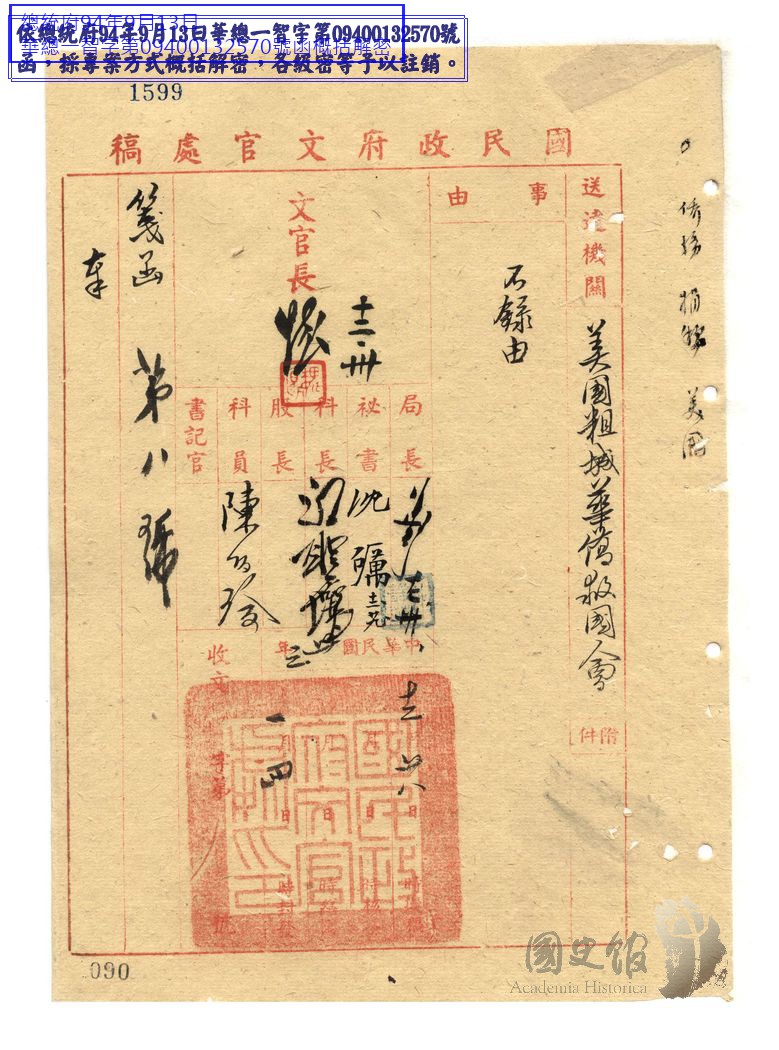 總統府94年9月13日
華總一智字第09400132570號函概括解密
依總統府94年9月13日華總一智字第09400132570號
函，採專案方式概括解密，各級密等予以註銷。
1599
國民政府文官處稿
僑務 捐獻 美國
送達機關
美國粗城華僑救國會
附件
事由
不錄由
文官長
十二、卅
局長
秘書
科長
股長
科員
書記官
沈礪
陳
中華民國 年
十二 廿八
一 四
日
日
日
日
時
時
時
時封發
收文
字第
號
箋函 第八號
國民政府文官處印
090
國史館
Academia Historica